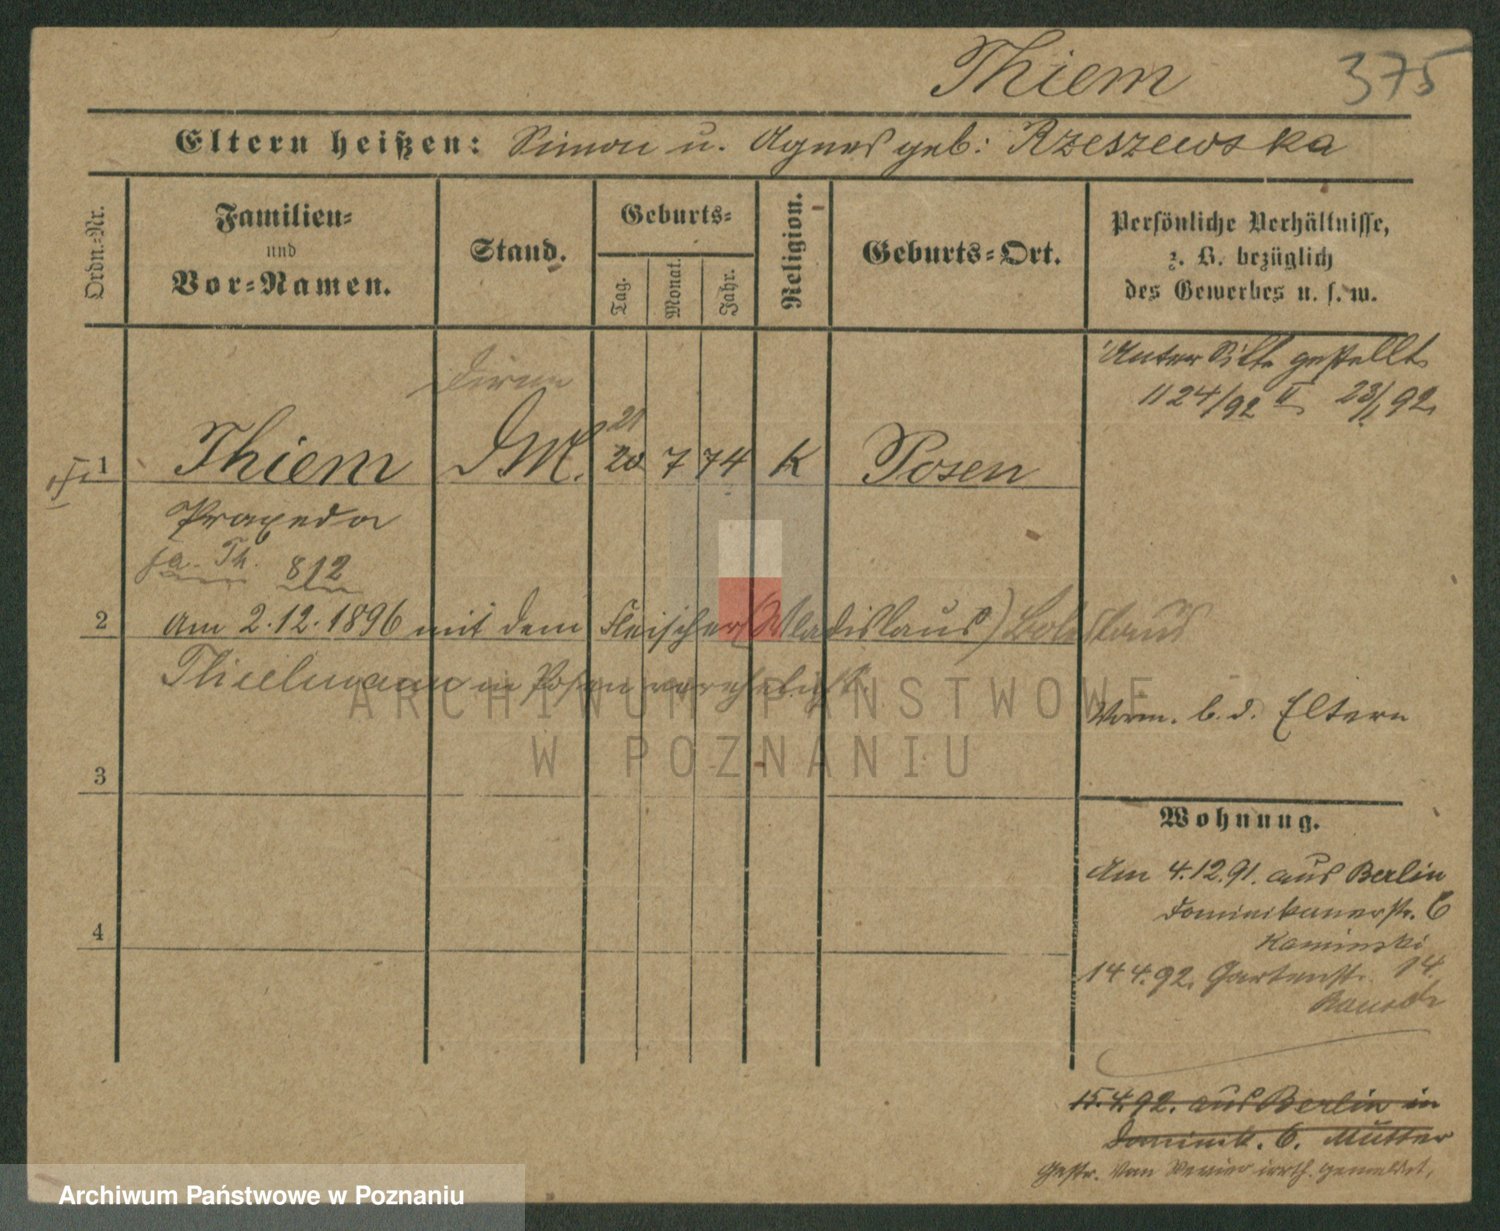 Thiem 375
Eltern heißen: Simon u. Agnes geb: Rzeszewska
Ordn.-Nr.
Familien- und Vor-Namen.
Stand.
Geburts-
Tag.
Monat.
Jahr.
Religion.
Geburts-Ort.
Persönliche Verhältnisse,
z. B. bezüglich
des Gewerbes u. s. w.
Dirne
Unter Sitte gestellt
1124/92 II 23/1 92.
21
1 Thiem DM. 20 7 74 K Posen
Praxeda
fa. Th. 812
2 am 2.12.1896 mit dem Fleischer (Wladislaus) Boleslaus
Thielmann in Posen verehelicht.
Vorm. b. d. Eltern
ARCHIWUM PAŃSTWOWE
W POZNANIU
3
Wohnung.
Am 4.12.91. aus Berlin
Dominikanerstr. 6
Kaminski
4
14 4.92. Gartenstr. 14.
15.4.92. aus Berlin in
Dominik. 6. Mutter
Gestr. irrth. gemeldet.
Archiwum Państwowe w Poznaniu